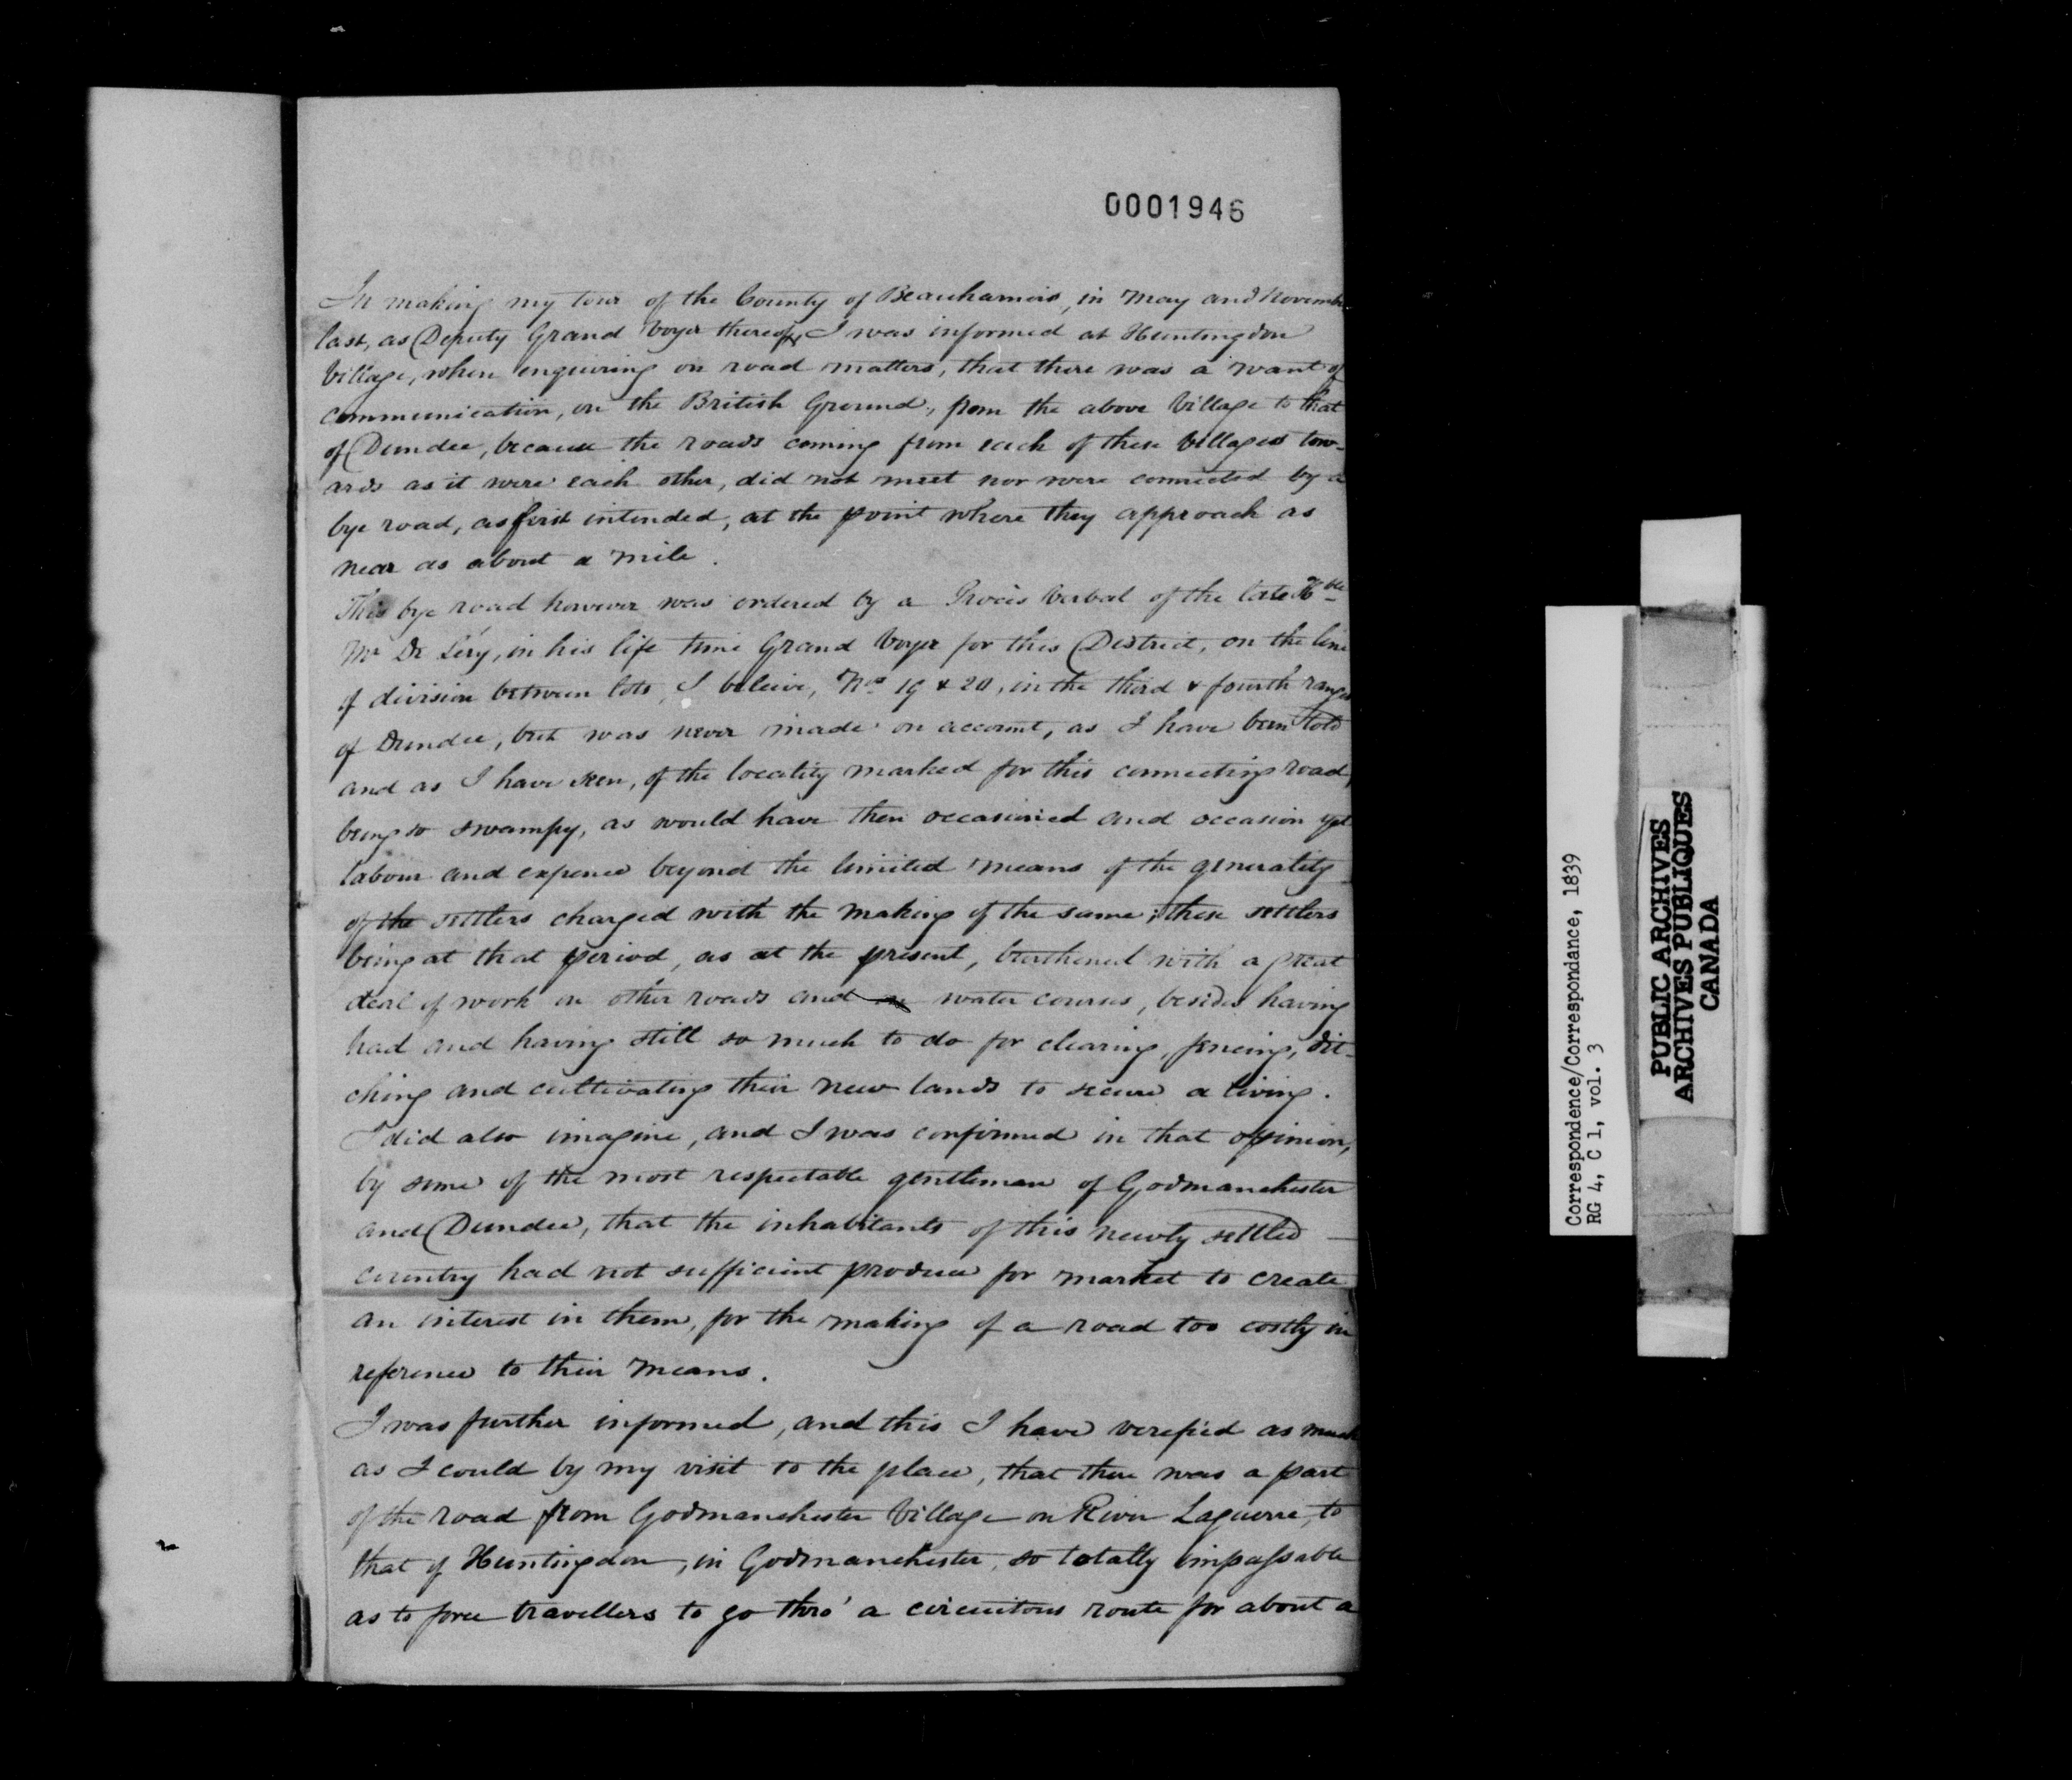 0001946
In making my tour of the County of Beauharnois, in May and November
last, as Deputy Grand Voyer thereof, I was informed at Huntingdon
Village, when enquiring on road matters, that there was a want of
communication, on the British Ground, from the above Village to that
of Dundee, because the roads coming from each of these Villages tow-
ards as it were each other, did not meet nor were connected by a
bye road, as first intended, at the point where they approach as
near as about a mile.
This bye road however was ordered by a Procès Verbal of the late Hble
Mr De Léry, in his life time Grand Voyer for this District, on the line
of division between lots, I beleive, Nos 19 & 20, in the third & fourth ranges
of Dundee, but was never made on account, as I have been told
and as I have seen, of the locality marked for this connecting road,
being so swampy, as would have then occasioned and occasion yet
labour and expence beyond the limited means of the generality
of the settlers charged with the making of the same; these settlers
being at that period, as at the present, burthened with a great
deal of work on other roads and on water courses, besides having
had and having still so much to do for clearing, fencing, dit-
ching and cultivating their new lands to secure a living.
I did also imagine, and I was confirmed in that opinion,
by some of the most respectable gentleman of Godmanchester
and Dundee, that the inhabitants of this newly settled
country had not sufficient produce for market to create
an interest in them, for the making of a road too costly in
reference to their means.
I was further informed, and this I have verified as much
as I could by my visit to the place, that there was a part
of the road from Godmanchester Village on River Laguerre, to
that of Huntingdon, in Godmanchester, so totally impassable
as to force travellers to go thro' a circuitous route for about a
Correspondence/Correspondance, 1839
RG 4, C 1, vol. 3
PUBLIC ARCHIVES
ARCHIVES PUBLIQUES
CANADA